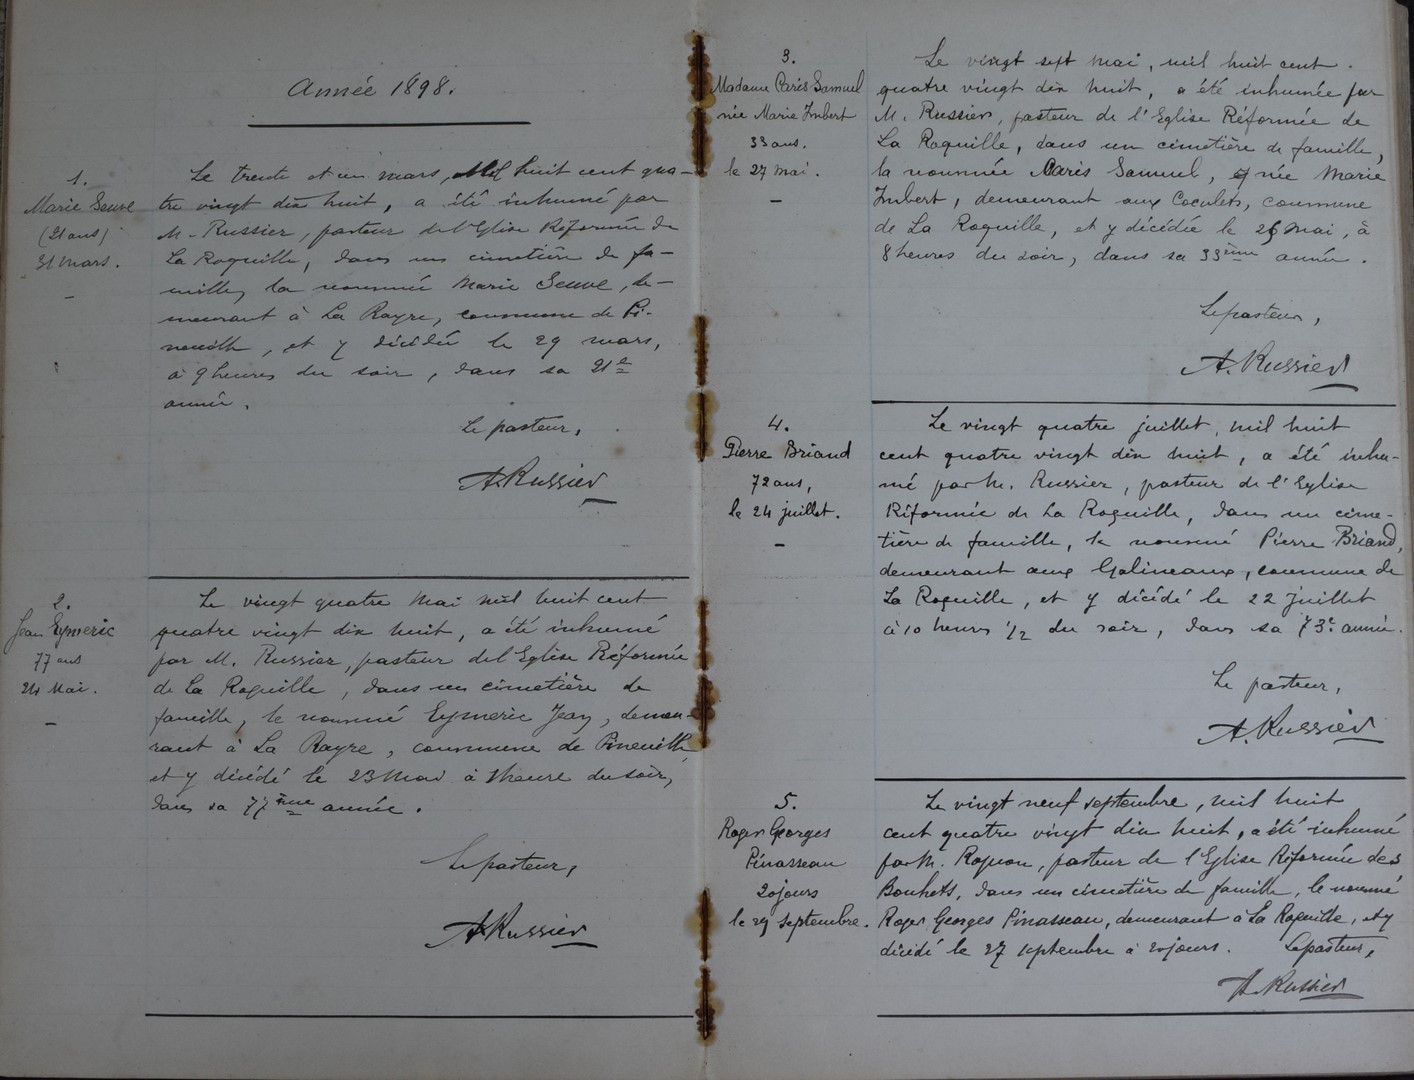 Année 1898.
1.
Marie Seuve
(21 ans)
31 mars.
Le trente et un mars, Mil huit cent qua-
tre vingt dix huit, a été inhumé par
M. Russier, pasteur de l'Eglise Réformée de
La Roquille, dans un cimetière de fa-
mille, la nommée Marie Seuve, de-
meurant à La Rayre, commune de Pi-
neuilh, et y décédée le 29 mars,
à 9 heures du soir, dans sa 21e
année.
Le pasteur,
A. Russier
2.
Jean Eymeric
77 ans
24 Mai.
Le vingt quatre Mai mil huit cent
quatre vingt dix huit, a été inhumé
par M. Russier, pasteur de l'Eglise Réformée
de La Roquille, dans un cimetière de
famille, le nommé Eymeric Jean, demeu-
rant à La Rayre, commune de Pineuilh
et y décédé le 23 Mai à 1 heure du soir,
dans sa 77ème année.
Le pasteur,
A. Russier
3.
Madame Paris Samuel
née Marie Imbert
33 ans.
le 27 Mai.
Le vingt sept Mai, mil huit cent
quatre vingt dix huit, a été inhumée par
M. Russier, pasteur de l'Eglise Réformée de
La Roquille, dans un cimetière de famille,
la nommée Paris Samuel, née Marie
Imbert, demeurant aux Coculets, commune
de La Roquille, et y décédée le 25 Mai, à
8 heures du soir, dans sa 33ème année.
Le pasteur,
A. Russier
4.
Pierre Briand
72 ans,
le 24 juillet.
Le vingt quatre juillet, mil huit
cent quatre vingt dix huit, a été inhu-
mé par M. Russier, pasteur de l'Eglise
Réformée de La Roquille, dans un cime-
tière de famille, le nommé Pierre Briand,
demeurant aux Galineaux, commune de
La Roquille, et y décédé le 22 juillet
à 10 heures 1/2 du soir, dans sa 73e année.
Le pasteur,
A. Russier
5.
Roger Georges
Pinasseau
20 jours
le 29 septembre.
Le vingt neuf septembre, mil huit
cent quatre vingt dix huit, a été inhumé
par M. Rognon, pasteur de l'Eglise Réformée des
Bouhets, dans un cimetière de famille, le nommé
Roger Georges Pinasseau, demeurant à La Roquille, et y
décédé le 27 septembre à 20 jours. Le pasteur,
A. Russier